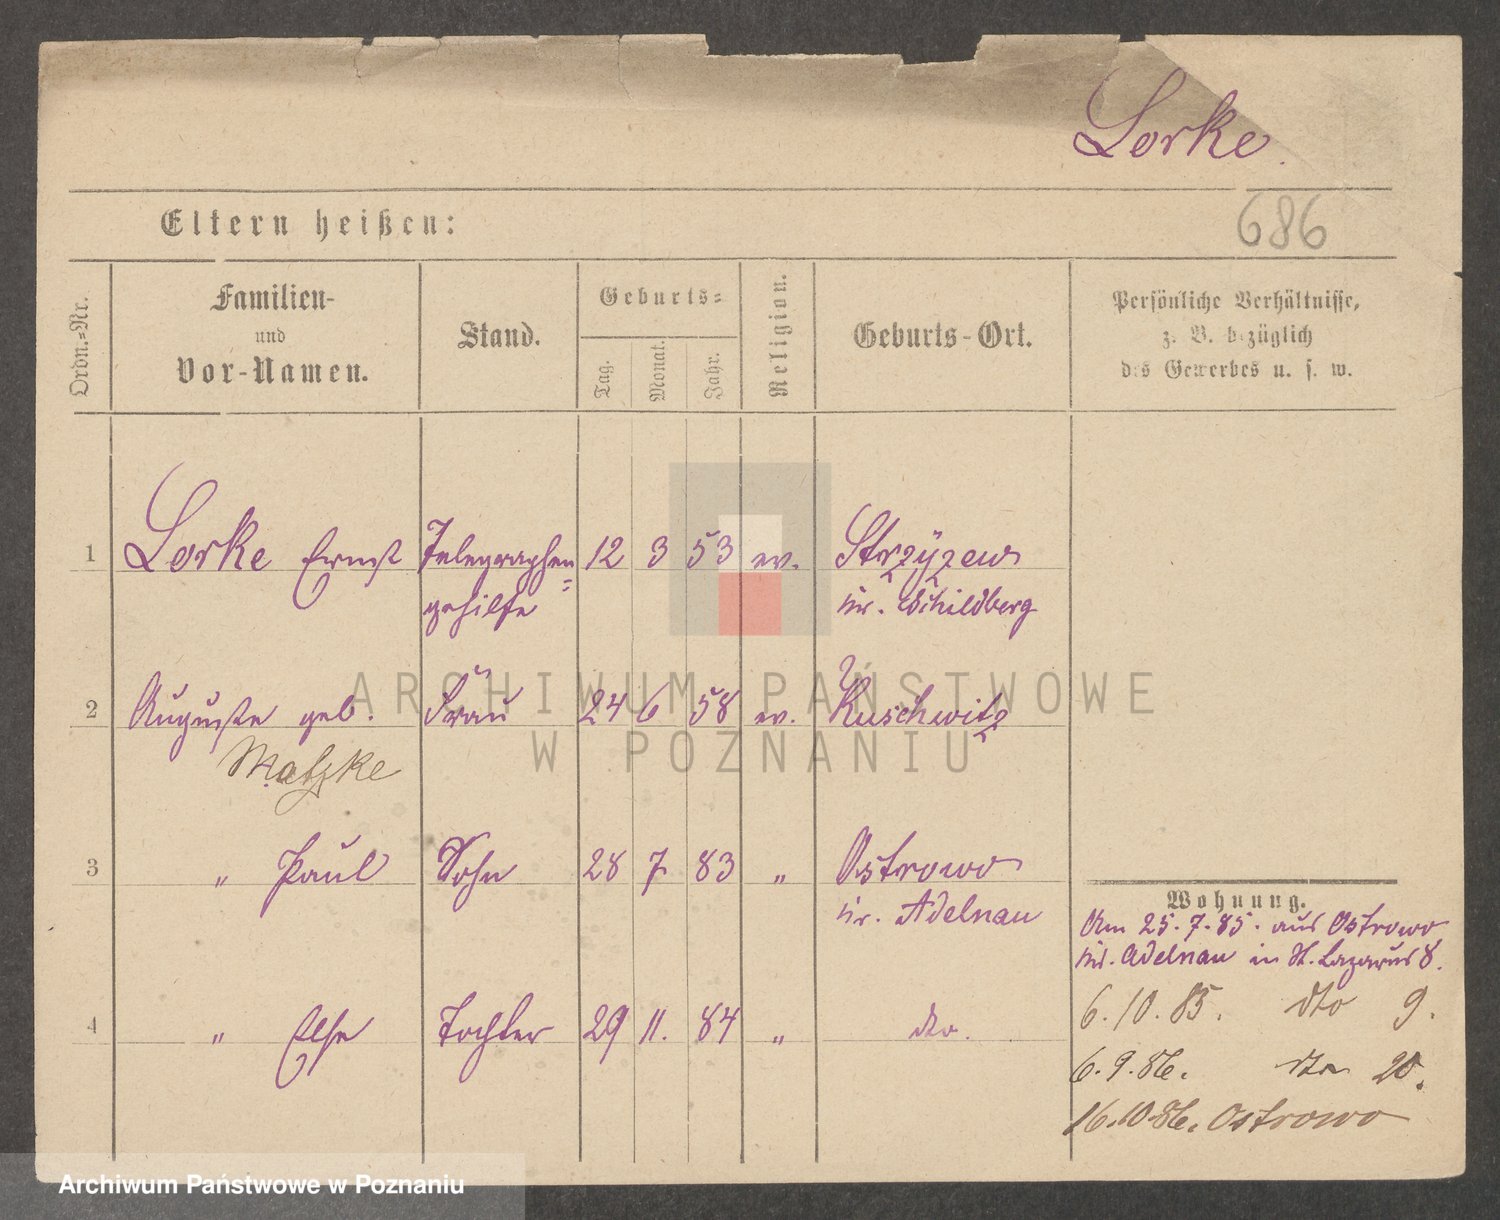 Lorke.
Eltern heißen:
686
Ordn.=Nr.
Familien-
und
Vor-Namen.
Stand.
Geburts=
Tag.
Monat.
Jahr.
Religion.
Geburts-Ort.
Persönliche Verhältnisse,
z. B. bezüglich
des Gewerbes u. s. w.
1 Lorke Ernst Telegraphen= 12 3 53 ev. Strzyzew
gehilfe Kr. Schildberg
2 Auguste geb. Frau 24 6 58 ev. Kuschwitz
Matzke
3 " Paul Sohn 28 7 83 " Ostrowo
Kr. Adelnau
4 " Else Tochter 29 11. 84 " dto.
Wohnung.
Am 25.7.85. aus Ostrowo
Kr. Adelnau in St. Lazarus 8.
6.10.85. dto 9.
6.9.86. dto 20.
16.10.86. Ostrowo
ARCHIWUM PAŃSTWOWE
W POZNANIU
Archiwum Państwowe w Poznaniu